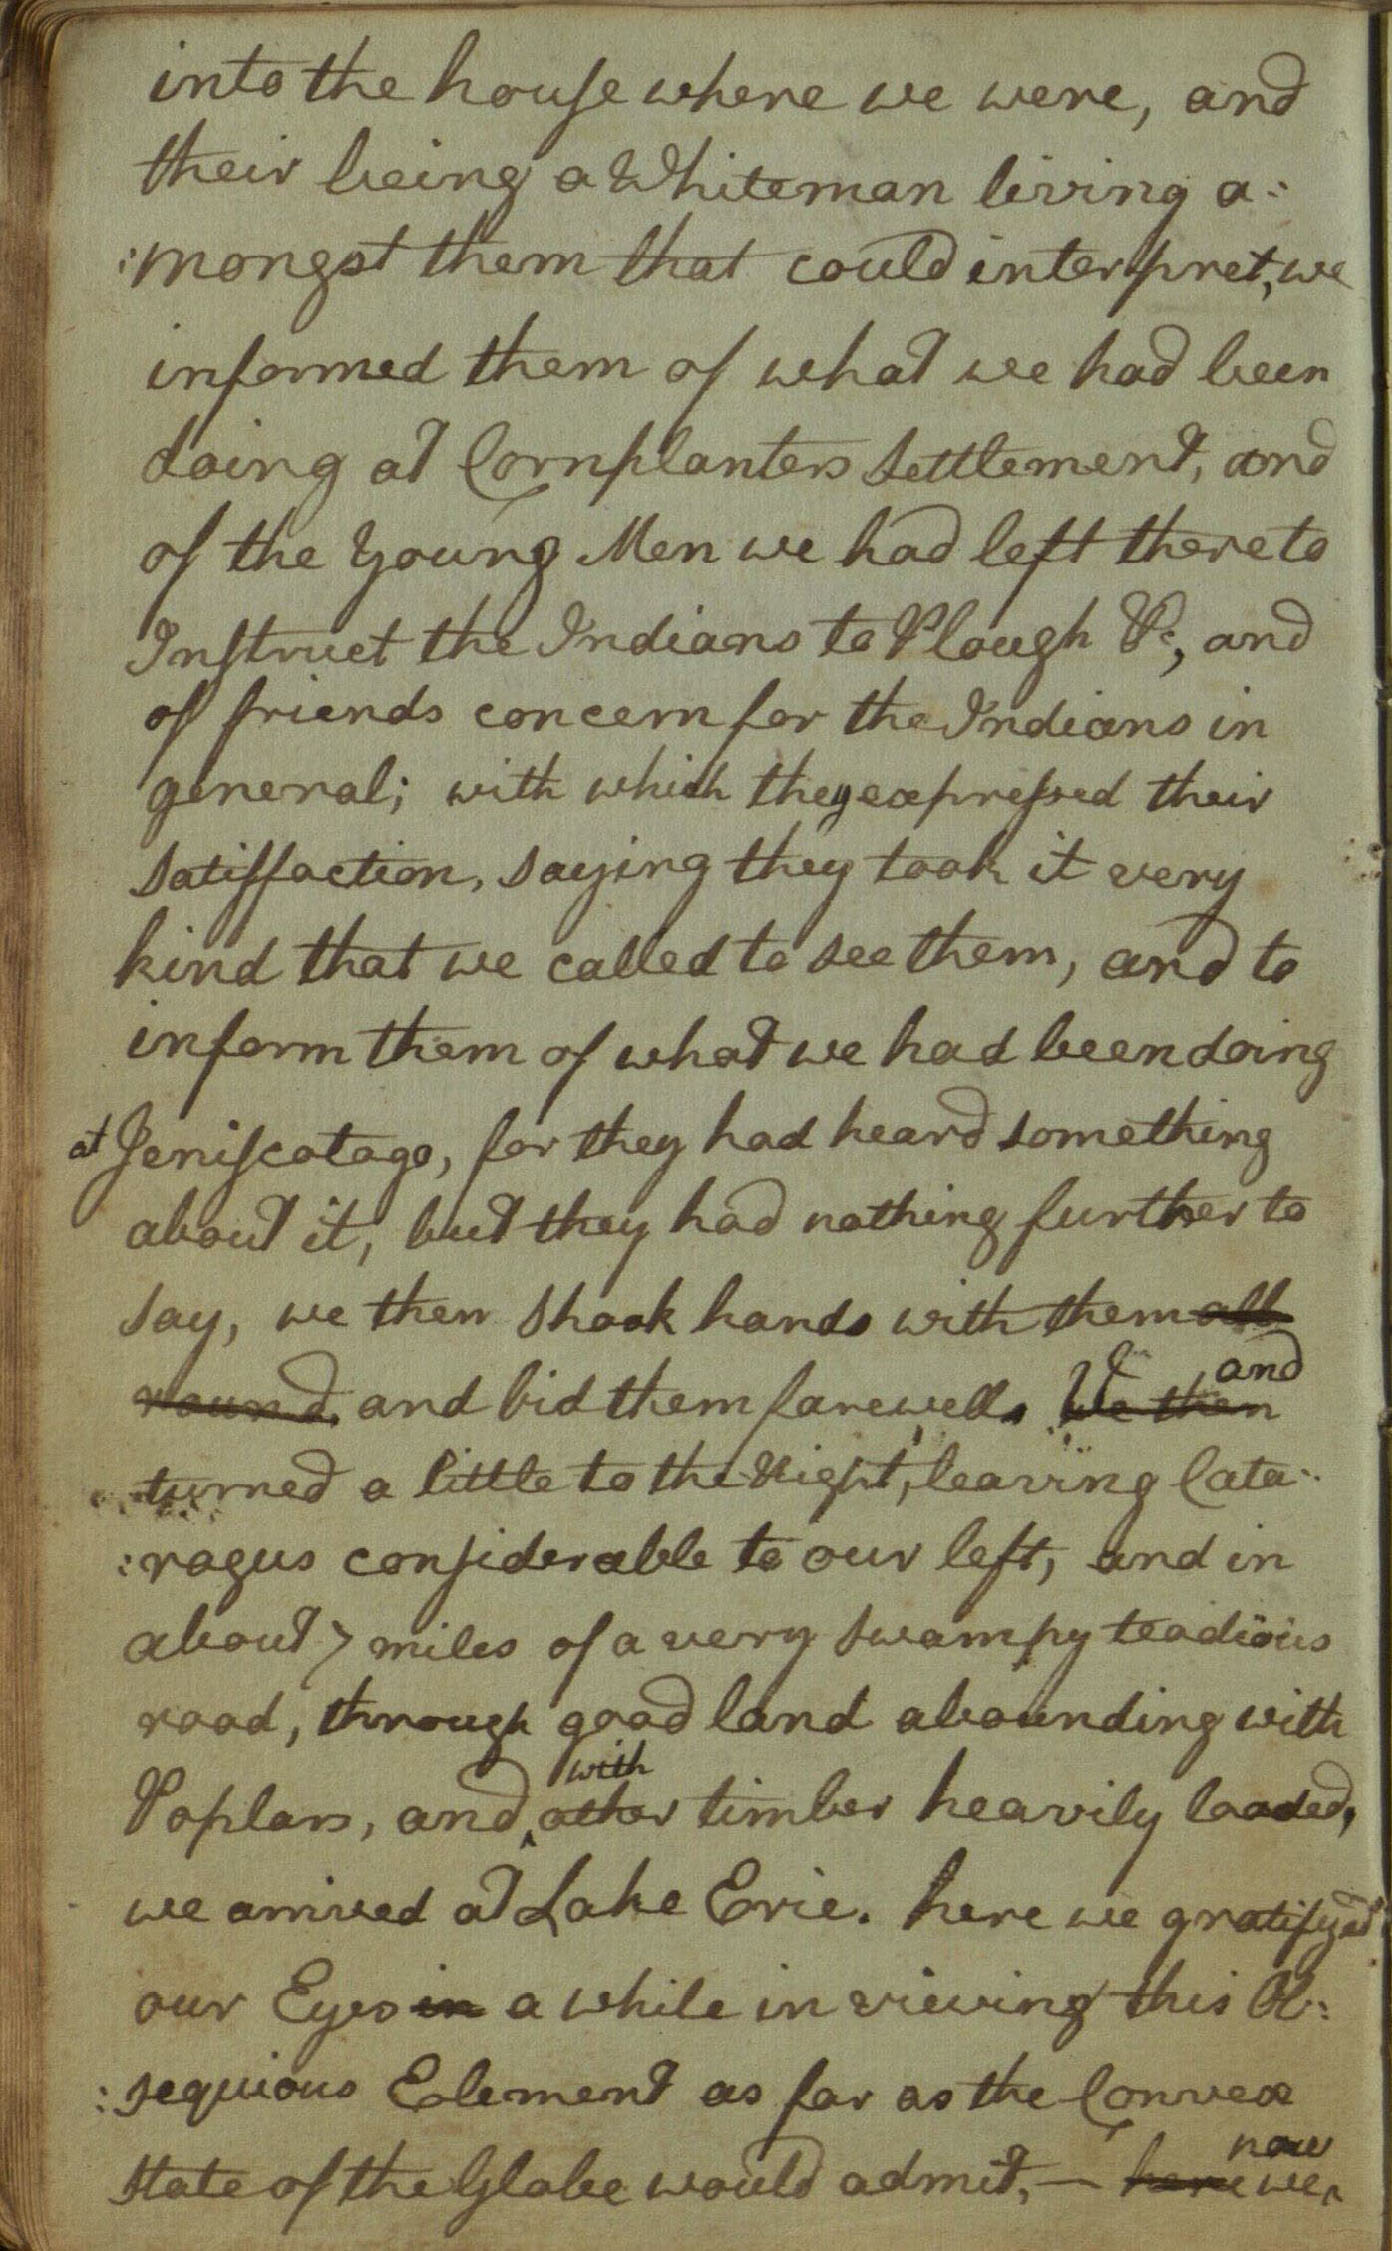 into the house where we were, and
their being a Whiteman living a=
=mongst them that could interpret, we
informed them of what we had been
doing at Cornplanters settlement, and
of the Young Men we had left there to
Instruct the Indians to Plough &c, and
of friends concern for the Indians in
general; with which they expressed their
satisfaction, saying they took it very
kind that we called to see them, and to
inform them of what we had been doing
at Jeniscatago, for they had heard something
about it, but they had nothing further to
say, we then shook hands with them all
round, and bid them farewell. We then and
turned a little to the Right, leaving Cata=
=ragus considerable to our left, and in
about 7 miles of a very swampy teadious
road, through good land abounding with
Poplars, and with other timber heavily loaded,
we arrived at Lake Erie. here we gratifyed
our Eyes in a while in viewing this Ob=
=sequious Element as far as the Convex
state of the Globe would admit, — here now we